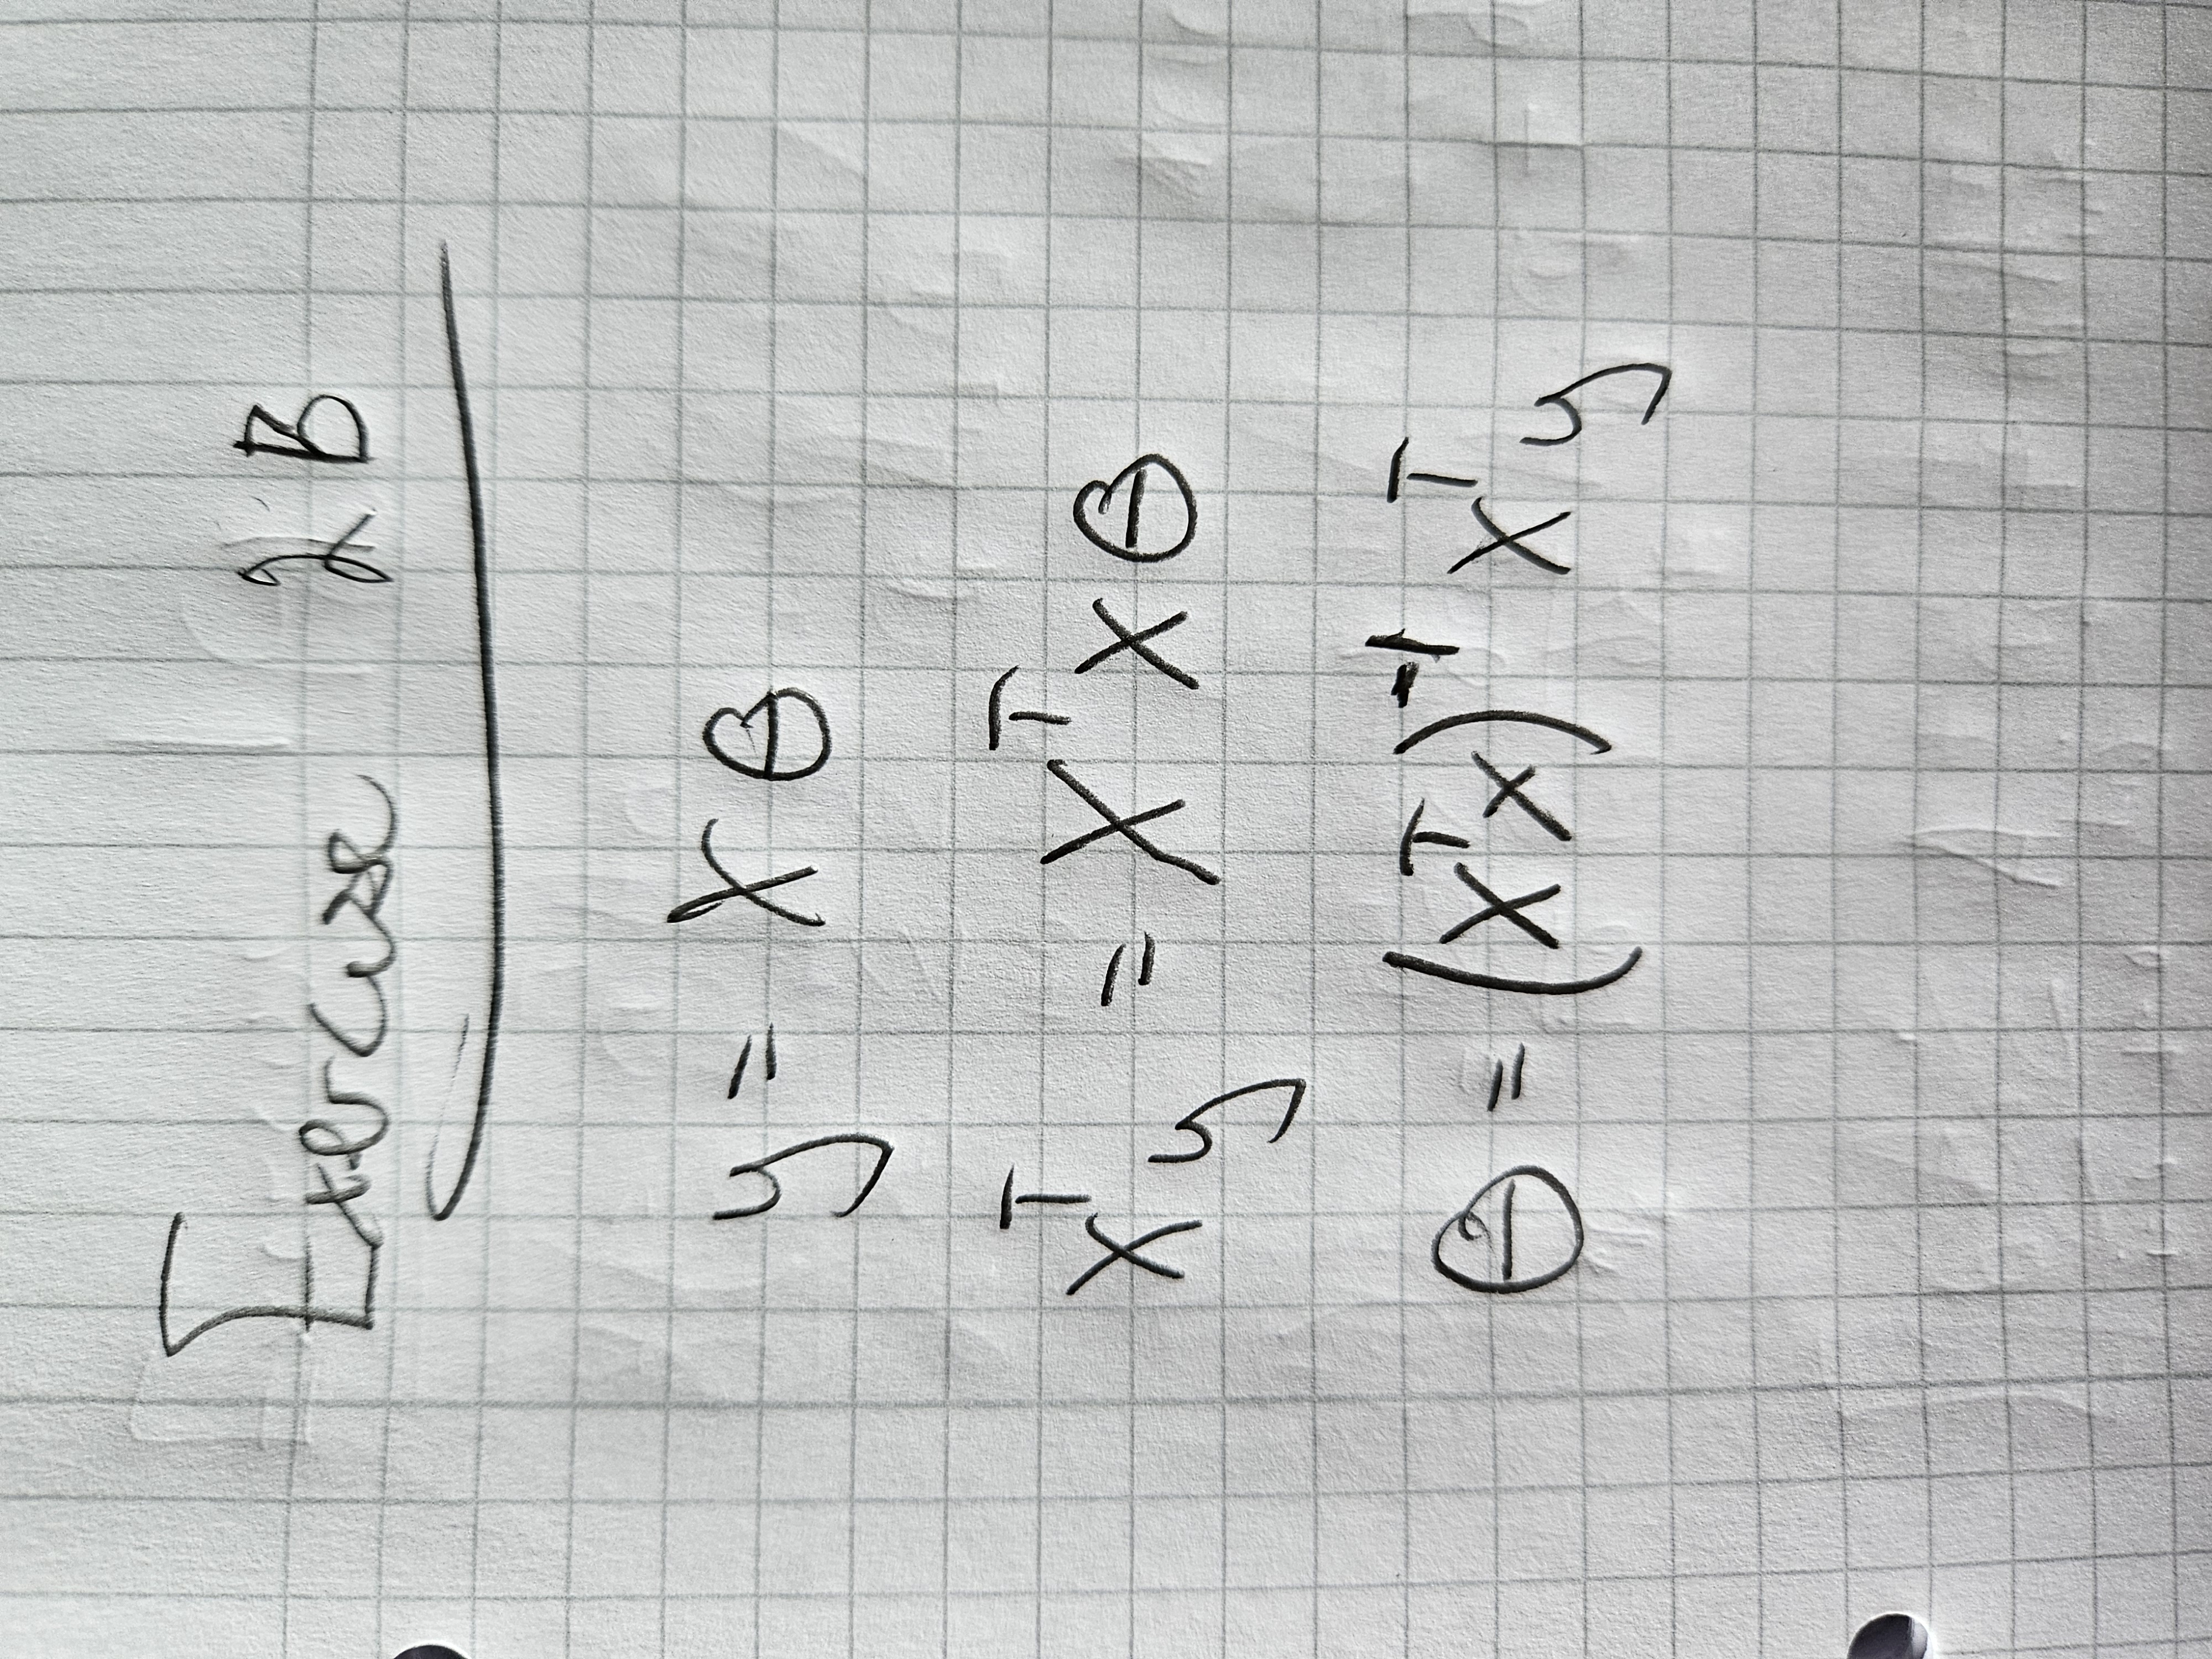 Exercise 2B
y = Xθ
Xᵀy = XᵀXθ
θ = (XᵀX)⁻¹ Xᵀy